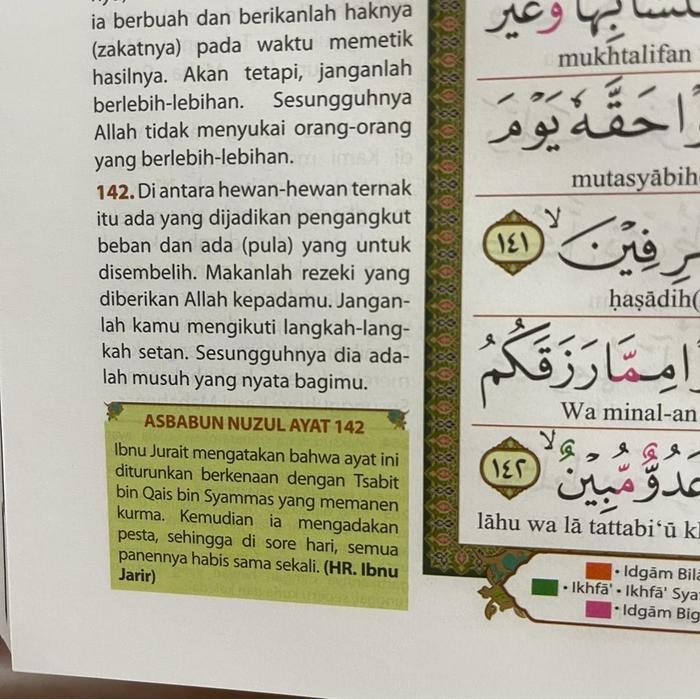 ia berbuah dan berikanlah haknya
(zakatnya) pada waktu memetik
hasilnya. Akan tetapi, janganlah
berlebih-lebihan. Sesungguhnya
Allah tidak menyukai orang-orang
yang berlebih-lebihan.
142. Di antara hewan-hewan ternak
itu ada yang dijadikan pengangkut
beban dan ada (pula) yang untuk
disembelih. Makanlah rezeki yang
diberikan Allah kepadamu. Jangan-
lah kamu mengikuti langkah-lang-
kah setan. Sesungguhnya dia ada-
lah musuh yang nyata bagimu.
ASBABUN NUZUL AYAT 142
Ibnu Jurait mengatakan bahwa ayat ini
diturunkan berkenaan dengan Tsabit
bin Qais bin Syammas yang memanen
kurma. Kemudian ia mengadakan
pesta, sehingga di sore hari, semua
panennya habis sama sekali. (HR. Ibnu
Jarir)
وَغَيْرَ
mukhtalifan
حَقَّهٗ يَوْمَ
mutasyābih
١٤١
ḥaṣādih(
مِمَّا رَزَقَكُمُ
Wa minal-an
عَدُوٌّ مُّبِيْنٌ ١٤٢
lāhu wa lā tattabi‘ū
• Idgām Bil
• Ikhfā' • Ikhfā' Sya
• Idgām Big